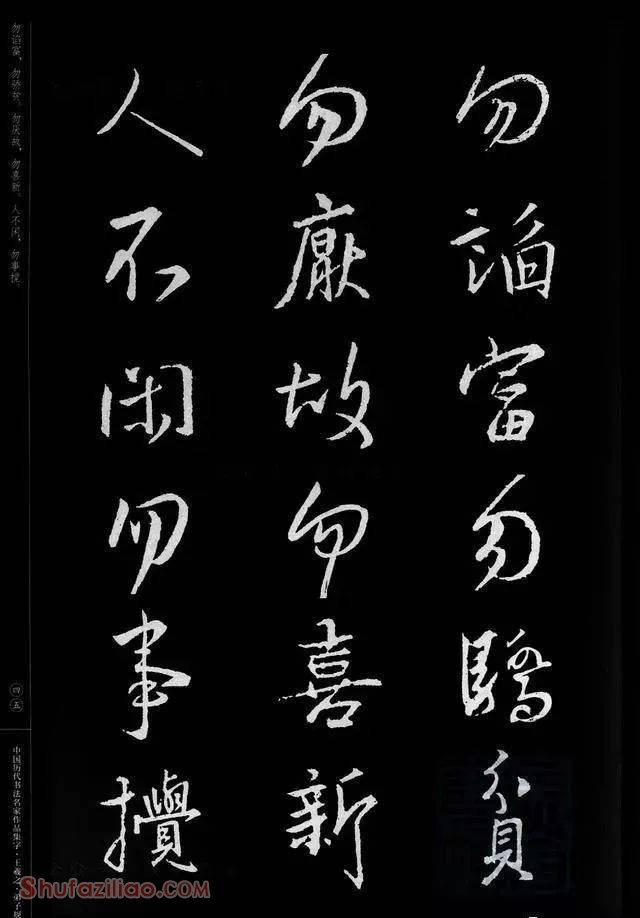 勿諂富勿驕貧
勿厭故勿喜新
人不闲勿事攪
勿谄富，勿骄贫。勿厌故，勿喜新。人不闲，勿事搅。
四五
中国历代书法名家作品集字·王羲之·弟子规
Shufaziliao.com